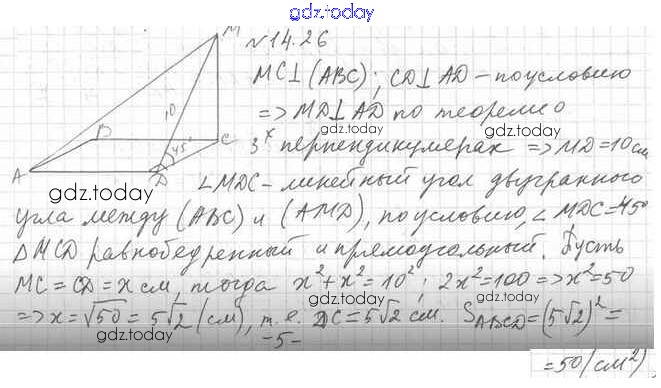 gdz.today
№14.26
M
10
B
C
45°
A
D
MC⊥(ABC); CD⊥AD - по условию
=> MD⊥AD по теореме о
gdz.today
3х перпендикулярах => MD=10см
gdz.today
gdz.today
∠MDC - линейный угол двугранного
угла между (ABC) и (AMD), по условию, ∠MDC=45°
gdz.today
gdz.today
ΔMCD равнобедренный и прямоугольный. Пусть
MC=CD=x см, тогда x²+x²=10²; 2x²=100=>x²=50
gdz.today
gdz.today
=>x=√50=5√2 (см), т.е. DC=5√2 см. SABCD=(5√2)²=
gdz.today
-5-
=50(см²)